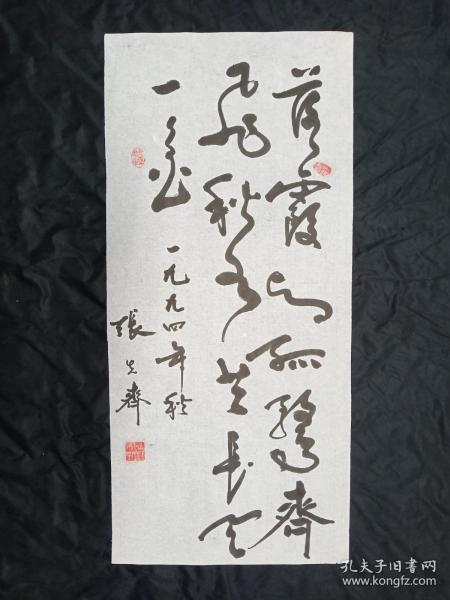 落霞与孤鹜齐
飞秋水共长天
一色
一九九四年秋
張先齊
孔夫子旧书网
www.kongfz.com